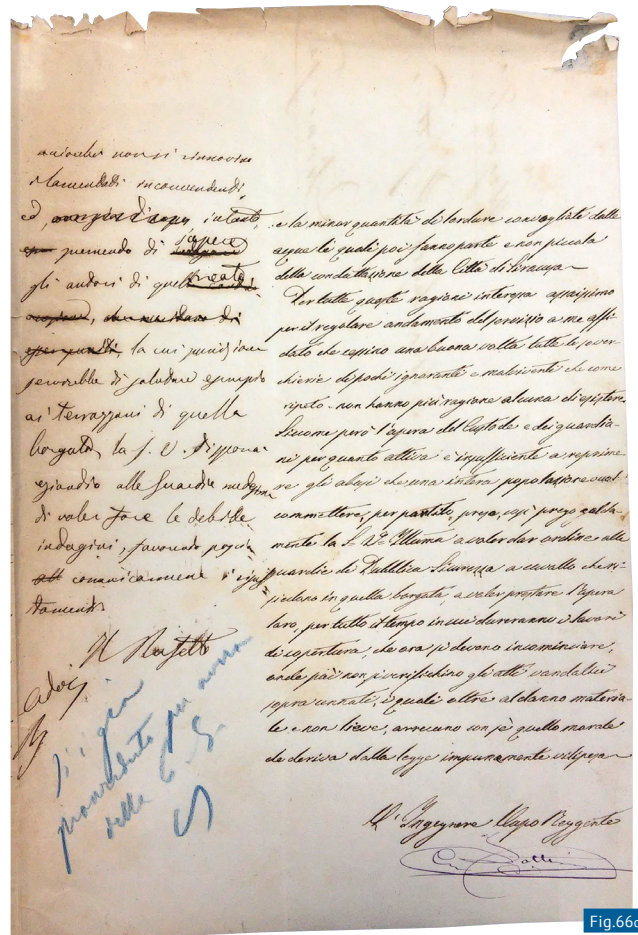 acciocché non si rinnovino
i lamentati inconvenienti,
ed, intanto,
premendo di sapere
gli autori di quel reato
la cui punizione
servirebbe di salutare esempio
ai terrazzani di quella
borgata, la S. V. disponga
eziandio alle Guardie medesime
di voler fare le debite
indagini, favorendo poscia
comunicarmene i risul
tamenti
Il Prefetto
e la minor quantità di lordure convogliate dalle
acque le quali poi fanno parte e non piccola
della condottazione della Città di Siracusa
Per tutte queste ragioni interessa assaissimo
per il regolare andamento del servizio a me affi
dato che cessino una buona volta tutte le sover
chierie di pochi ignoranti e malviventi che come
ripeto non hanno più ragione alcuna di esistere
Siccome però l'opera del Custode e dei guardia
ni per quanto attiva è insufficiente a reprime
re gli abusi che una intera popolazione vuol
commettere, per partito preso, così prego calda
mente la S. Va. Illuma a voler dar ordine alle
guardie di Pubblica Sicurezza a cavallo che ri
siedono in quella borgata, a voler prestare l'opera
loro, per tutto il tempo in cui dureranno i lavori
di copertura, che ora si devono incominciare,
onde poi non si verifichino gli atti vandalici
sopra cennati, i quali oltre al danno materia
le e non lieve, arrecano con sè quello morale
che deriva dalla legge impunemente vilipesa
L'Ingegnere Capo Reggente
Si è già
provveduto per mezzo
della